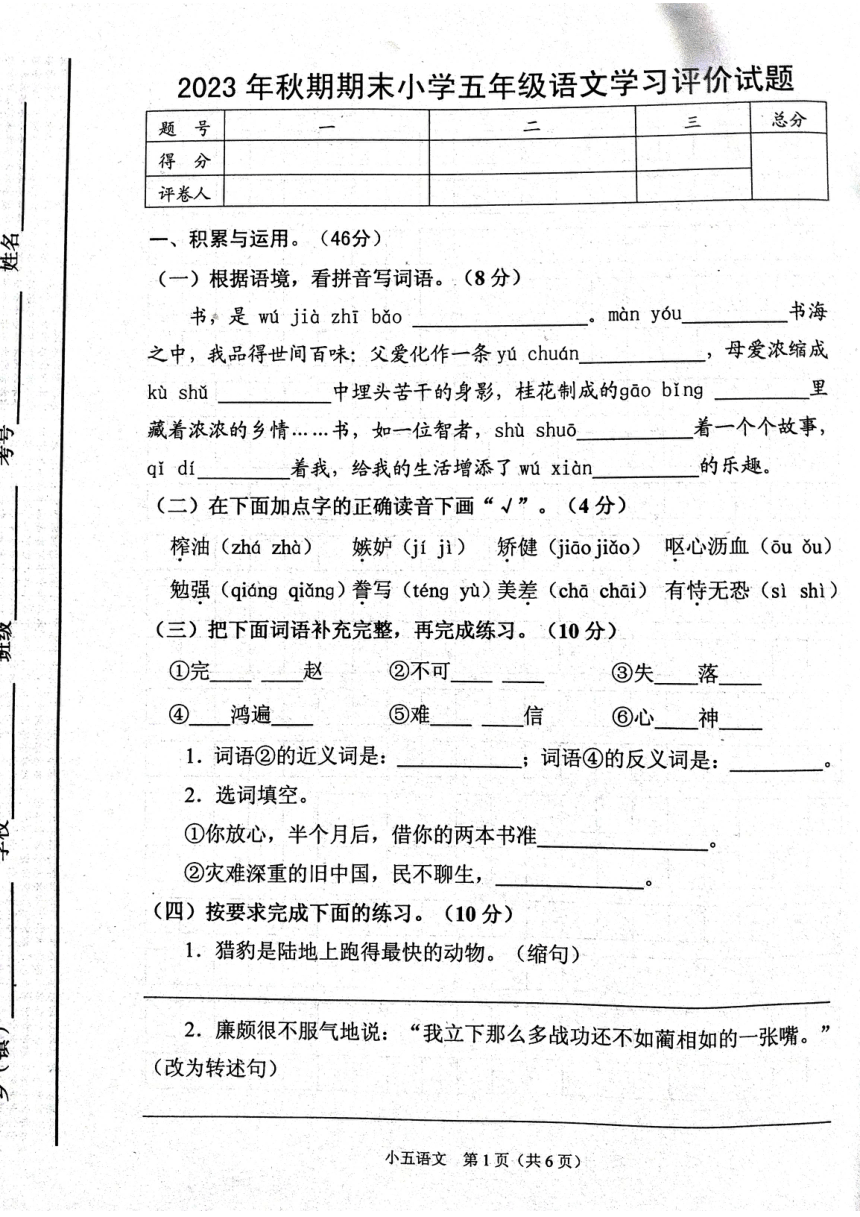 2023年秋期期末小学五年级语文学习评价试题
题 号 一 二 三 总分
得 分
评卷人
一、积累与运用。（46分）
（一）根据语境，看拼音写词语。（8分）
书，是 wú jià zhī bǎo ____________。màn yóu________书海
之中，我品得世间百味：父爱化作一条 yú chuán__________，母爱浓缩成
kù shǔ __________中埋头苦干的身影，桂花制成的gāo bǐng ________里
藏着浓浓的乡情……书，如一位智者，shù shuō__________着一个个故事，
qǐ dí________着我，给我的生活增添了 wú xiàn_________的乐趣。
（二）在下面加点字的正确读音下画“√”。（4分）
榨油（zhá zhà） 嫉妒（jí jì） 矫健（jiāo jiǎo） 呕心沥血（ōu ǒu）
勉强（qiáng qiǎng）誊写（téng yù）美差（chā chāi） 有恃无恐（sì shì）
（三）把下面词语补充完整，再完成练习。（10分）
①完____ ____赵 ②不可____ ____ ③失____落____
④____鸿遍____ ⑤难____ ____信 ⑥心____神____
1．词语②的近义词是：___________；词语④的反义词是：________。
2．选词填空。
①你放心，半个月后，借你的两本书准______________。
②灾难深重的旧中国，民不聊生，____________。
（四）按要求完成下面的练习。（10分）
1．猎豹是陆地上跑得最快的动物。（缩句）
2．廉颇很不服气地说：“我立下那么多战功还不如蔺相如的一张嘴。”
（改为转述句）
小五语文 第1页（共6页）
姓名
考号
班级
学校